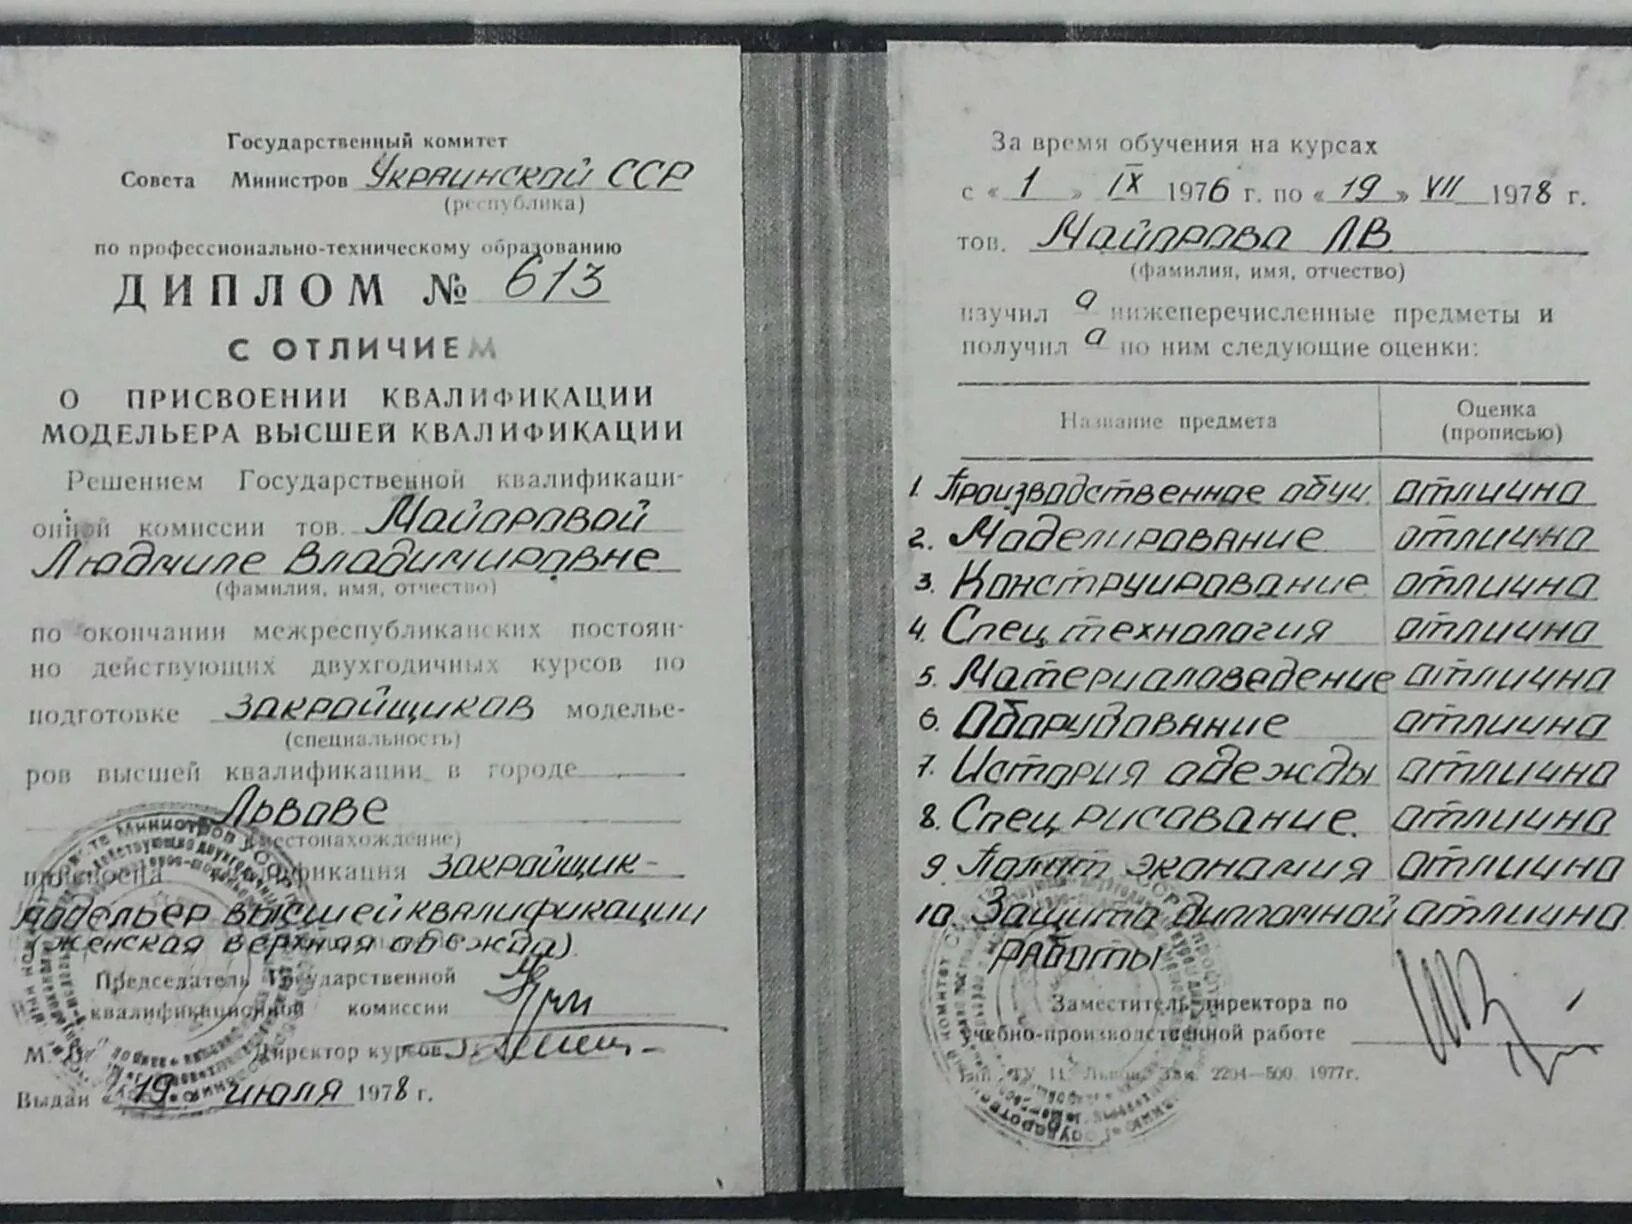 Государственный комитет
Совета Министров Украинской ССР
(республика)
по профессионально-техническому образованию
ДИПЛОМ № 613
С ОТЛИЧИЕМ
О ПРИСВОЕНИИ КВАЛИФИКАЦИИ
МОДЕЛЬЕРА ВЫСШЕЙ КВАЛИФИКАЦИИ
Решением Государственной квалификаци-
онной комиссии тов. Майоровой
Людмиле Владимировне
(фамилия, имя, отчество)
по окончании межреспубликанских постоян-
но действующих двухгодичных курсов по
подготовке закройщиков моделье-
(специальность)
ров высшей квалификации в городе
Львове
(местонахождение)
присвоена квалификация закройщик-
модельер высшей квалификации
(женская верхняя одежда).
Председатель Государственной
квалификационной комиссии
М. П. Директор курсов
Выдан «19» июля 1978 г.
За время обучения на курсах
с «1» IX 1976 г. по «19» VII 1978 г.
тов. Майорова Л.В
(фамилия, имя, отчество)
изучил а нижеперечисленные предметы и
получил а по ним следующие оценки:
Название предмета Оценка
(прописью)
1. Производственное обуч. отлично
2. Моделирование отлично
3. Конструирование отлично
4. Спец. технология отлично
5. Материаловедение отлично
6. Оборудование отлично
7. История одежды отлично
8. Спец. рисование. отлично
9. Полит экономия отлично
10. Защита дипломной отлично
работы
Заместитель директора по
учебно-производственной работе
Зак. 2204—500. 1977г.